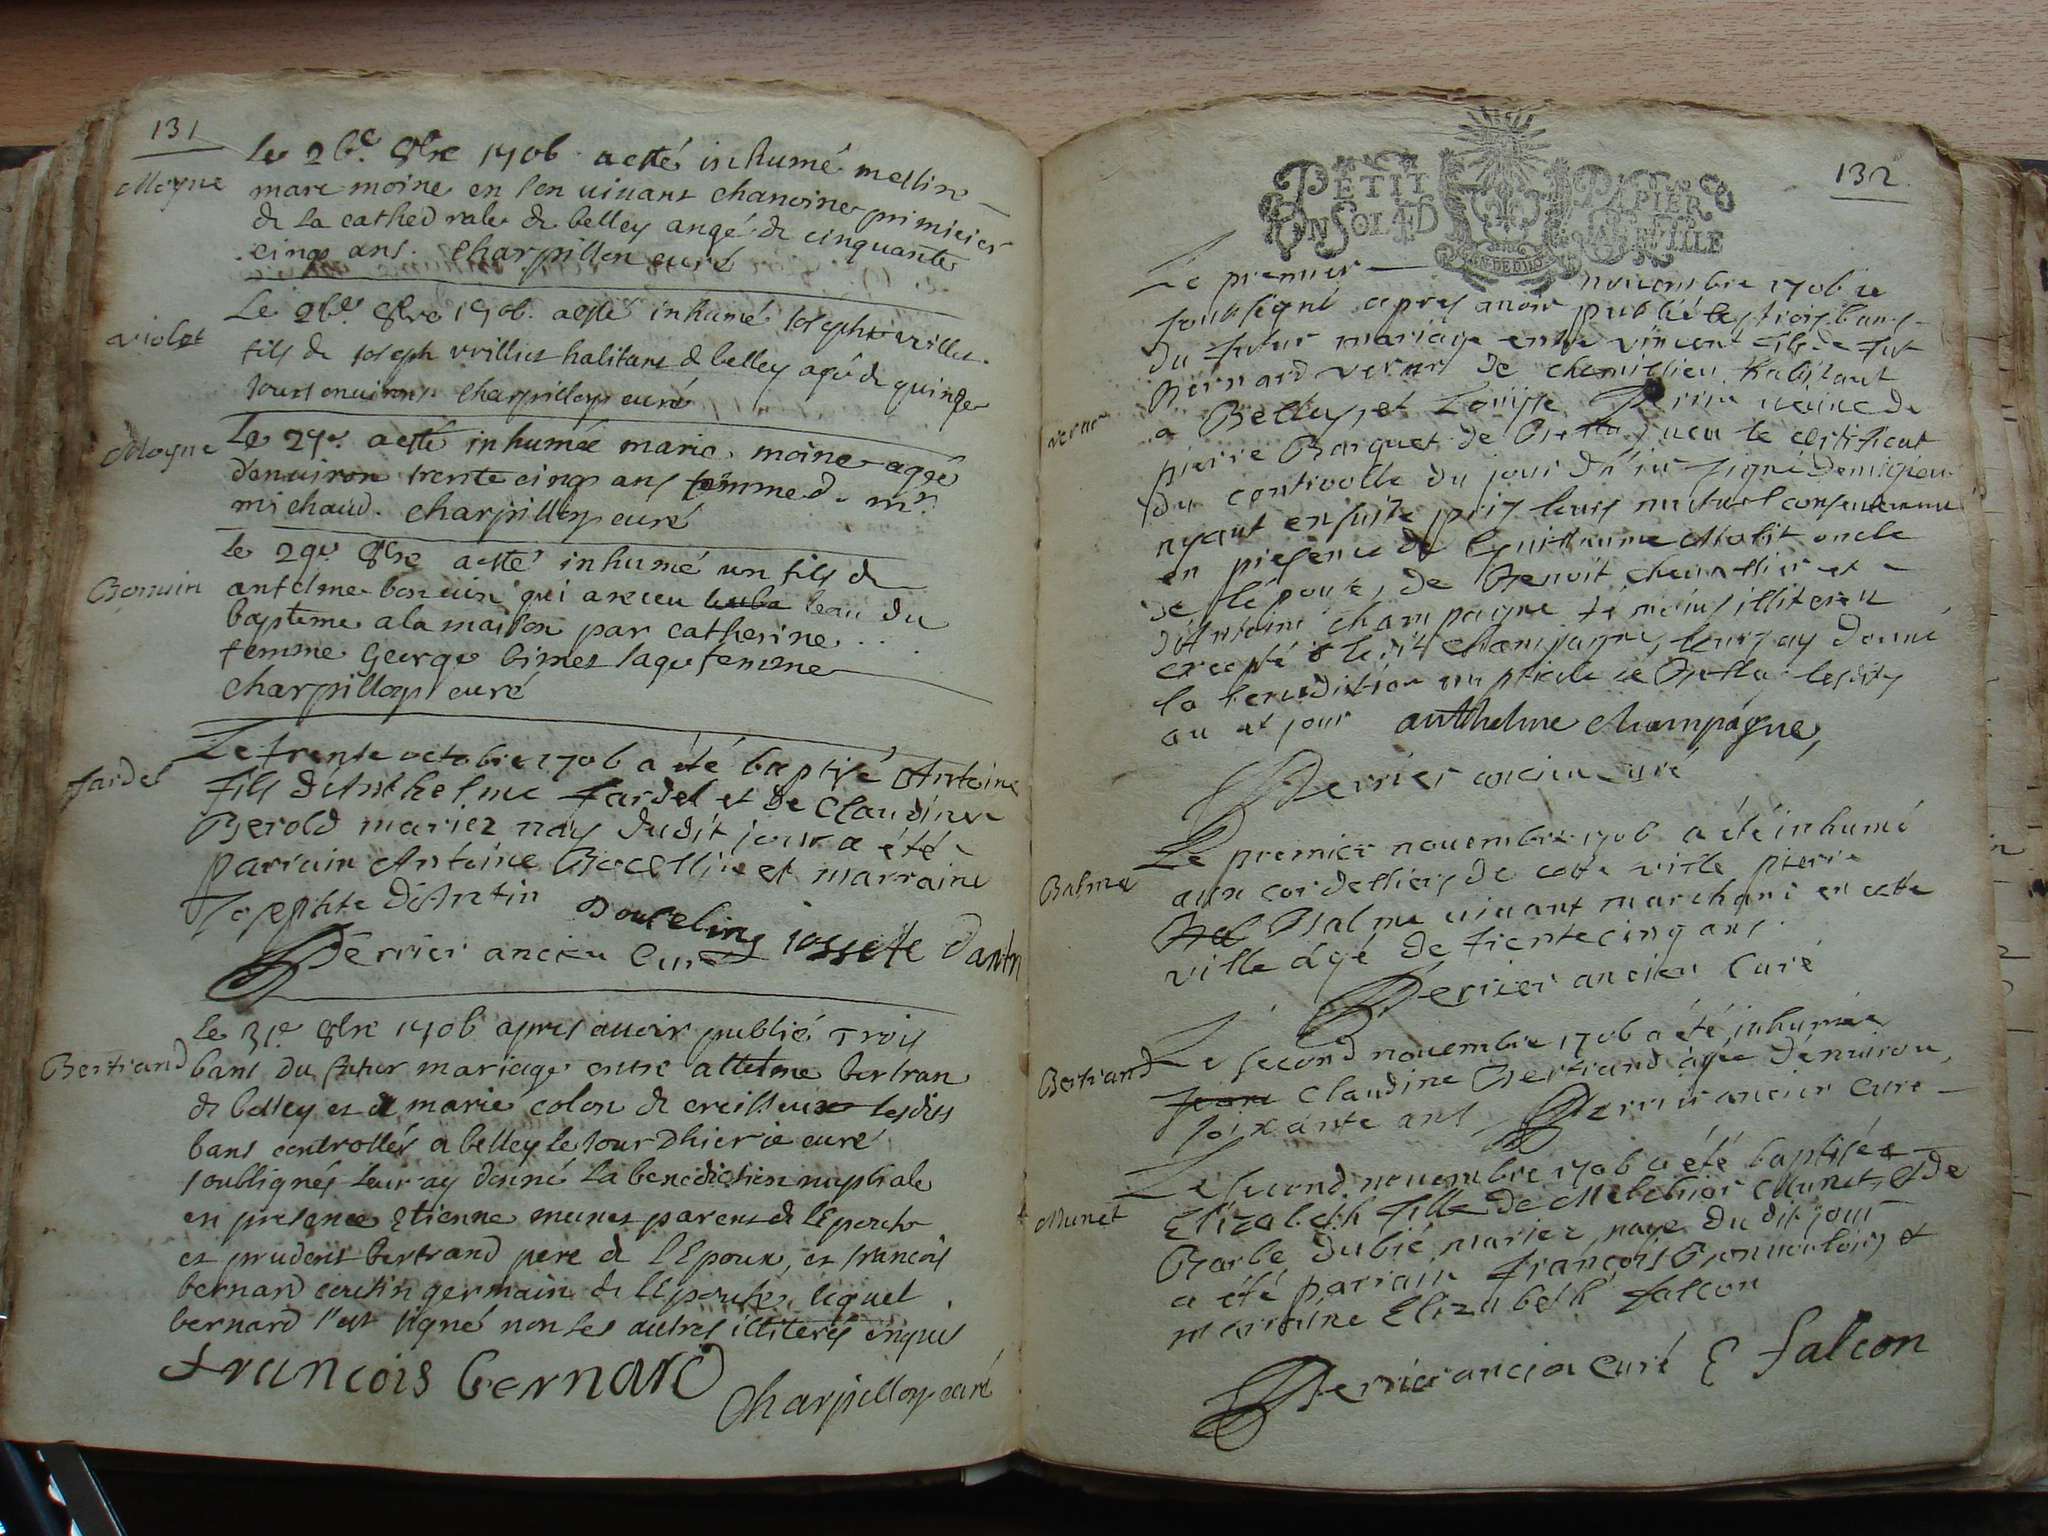 131
Moyne
le 26e. 8bre 1706 a esté inhumé messire
marc moine en son vivant chanoine primicier
de la cathedrale de belley angé de cinquante
cinq ans. Charpillon curé
violet
Le 26e. 8bre 1706. a esté inhumé Joseph
fils de joseph habitant de belley agé de quinze
jours environ charpilloy curé
Moyne
Le 27e. a esté inhumée marie moine agée
d'environ trente cinq ans femme de mr.
michaud. charpilloy curé
Bonuin
le 29e 8bre a esté inhumé un fils de
antelme bonuin qui a receu leau du
bapteme a la maison par catherine
femme George bimet sage femme
charpilloy curé
fardel
Le trente octobre 1706 a été baptisé Antoine
fils d'Anthelme fardel et de Claudine
Berold mariez nay dudit jour a été
parrain Antoine et marraine
Josephte d'Antin
Douceling jossette dantin
Perrier ancien curé
Bertrand
le 31e. 8bre 1706 apres avoir publié trois
bans du futur mariage entre attelme bertran
de belley et marie colon de creillieux lesdits
bans controllés a belley le jour d'hier je curé
soubsignés leur ay donné la benediction nuptiale
en presence Etienne munet parent de l'Epouse
et prudent bertrand pere de l'Epoux, et francois
bernard cousin germain de l'Epouse, lequel
bernard s'est signé non les autres illiterés enquis
francois bernard
Charpilloy curé
132
PETIT PAPIER
UN SOL
LA FEUILLE
vernr
Le premier novembre 1706 je
soussigné apres avoir publié les trois bans
du futur mariage entre vincent fils de fut
Bernard de chemilieu habitant
a Belley, et Louise Perrin veuve de
pierre Barquet de veu le certificat
du controolle du jour d'hier signé Demigieu
ayant ensuite pris leurs mutuel consentement
en presence de Guillaume Mabit oncle
de l'epouse, de Benoit chevallier et
d'Antoine champagne témoins illiterez
excepté ledit Champagne, leurs ay donné
la benediction nuptiale a Belley lesdits
an et jour anthelme Champagne,
Perrier ancien curé
Balme
Le premier novembre 1706 a été inhumé
aux cordelliers de cette ville pierre
Bal Balme vivant marchand en cette
ville agé de trente cinq ans.
Perrier ancien Curé
Bertrand
Le second novembre 1706 a été inhumée
Claudine Bertrand agée d'environ
soixante ans, Perrier ancien Curé
Munet
Le second novembre 1706 a été baptisée
Elizabeth fille de Melchior Munet, et de
Barbe Dubié mariez, naye dudit jour
a été parrain françois et
marraine Elizabeth falcon
Perrier ancien Curé E falcon